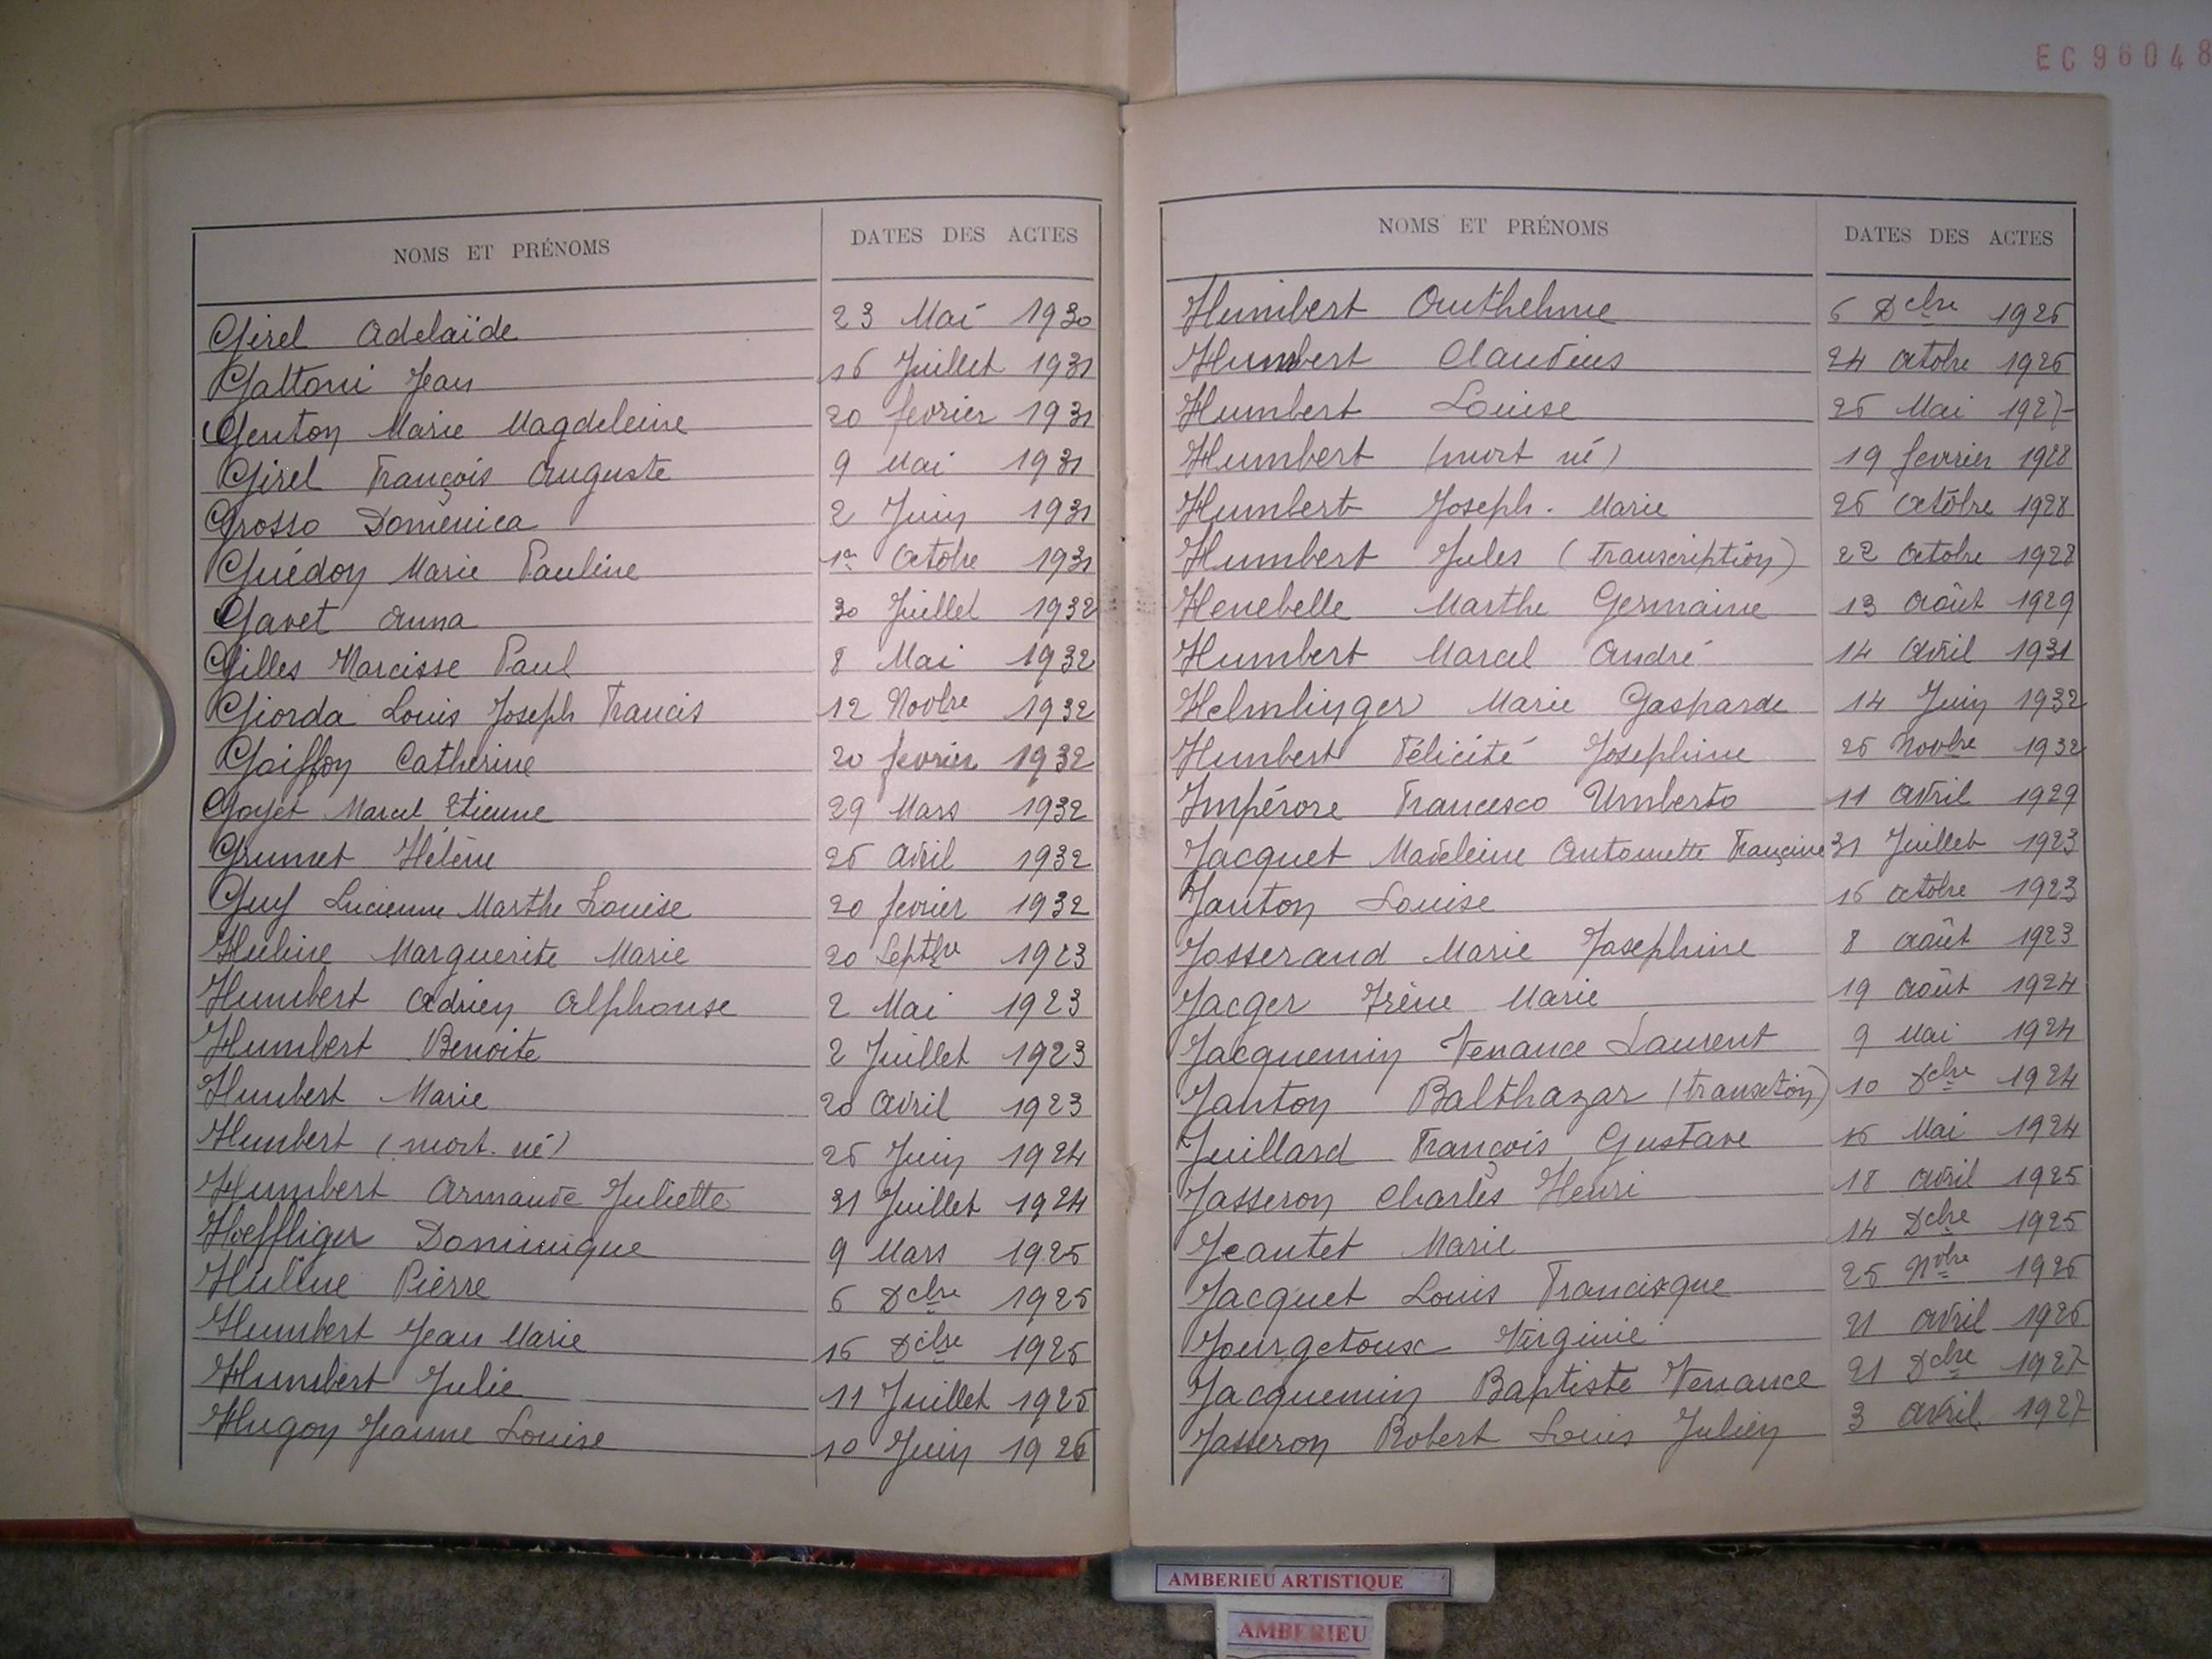 EC 96048
NOMS ET PRÉNOMS DATES DES ACTES
Girel Adelaïde 23 Mai 1930
Gattoni Jean 16 Juillet 1931
Genton Marie Magdeleine 20 fevrier 1931
Girel François Auguste 9 Mai 1931
Grosso Domenica 2 Juin 1931
Guédon Marie Pauline 1er Octobre 1931
Gavet Anna 30 Juillet 1932
Gilles Narcisse Paul 8 Mai 1932
Giorda Louis Joseph Francis 12 Novbre 1932
Goiffon Catherine 20 fevrier 1932
Goyet Marcel Etienne 29 Mars 1932
Grumet Hélène 26 Avril 1932
Guy Lucienne Marthe Louise 20 fevrier 1932
Huline Marguerite Marie 20 Septbre 1923
Humbert Adrien Alphonse 2 Mai 1923
Humbert Benoite 2 Juillet 1923
Humbert Marie 20 Avril 1923
Humbert (mort-né) 26 Juin 1924
Humbert Armande Juliette 31 Juillet 1924
Hoeffliger Dominique 9 Mars 1925
Huline Pierre 6 Dcbre 1925
Humbert Jean Marie 16 Dcbre 1925
Humbert Julie 11 Juillet 1925
Hugon Jeanne Louise 10 Juin 1926
NOMS ET PRÉNOMS DATES DES ACTES
Humbert Anthelme 6 Dcbre 1926
Humbert Claudius 24 Octobre 1926
Humbert Louise 26 Mai 1927
Humbert (mort né) 19 fevrier 1928
Humbert Joseph-Marie 26 Octobre 1928
Humbert Jules (transcription) 22 Octobre 1928
Henebelle Marthe Germaine 13 Août 1929
Humbert Marcel André 14 Avril 1931
Helmlinger Marie Gasparde 14 Juin 1932
Humbert Félicité Josephine 26 Novbre 1932
Impérore Francesco Umberto 11 Avril 1929
Jacquet Madeleine Antoinette Françoise 31 Juillet 1923
Janton Louise 16 Octobre 1923
Josserand Marie Josephine 8 Août 1923
Jacger Irène Marie 19 Août 1924
Jacquemin Venance Laurent 9 Mai 1924
Janton Balthazar (transction) 10 Dcbre 1924
Juillard François Gustave 16 Mai 1924
Jasseron Charles Henri 18 Avril 1925
Jeantet Marie 14 Dcbre 1925
Jacquet Louis Francisque 25 Novbre 1926
Virginie 21 Avril 1926
Jacquemin Baptiste Venance 21 Dcbre 1927
Jasseron Robert Louis Julien 3 Avril 1927
AMBERIEU ARTISTIQUE
AMBERIEU